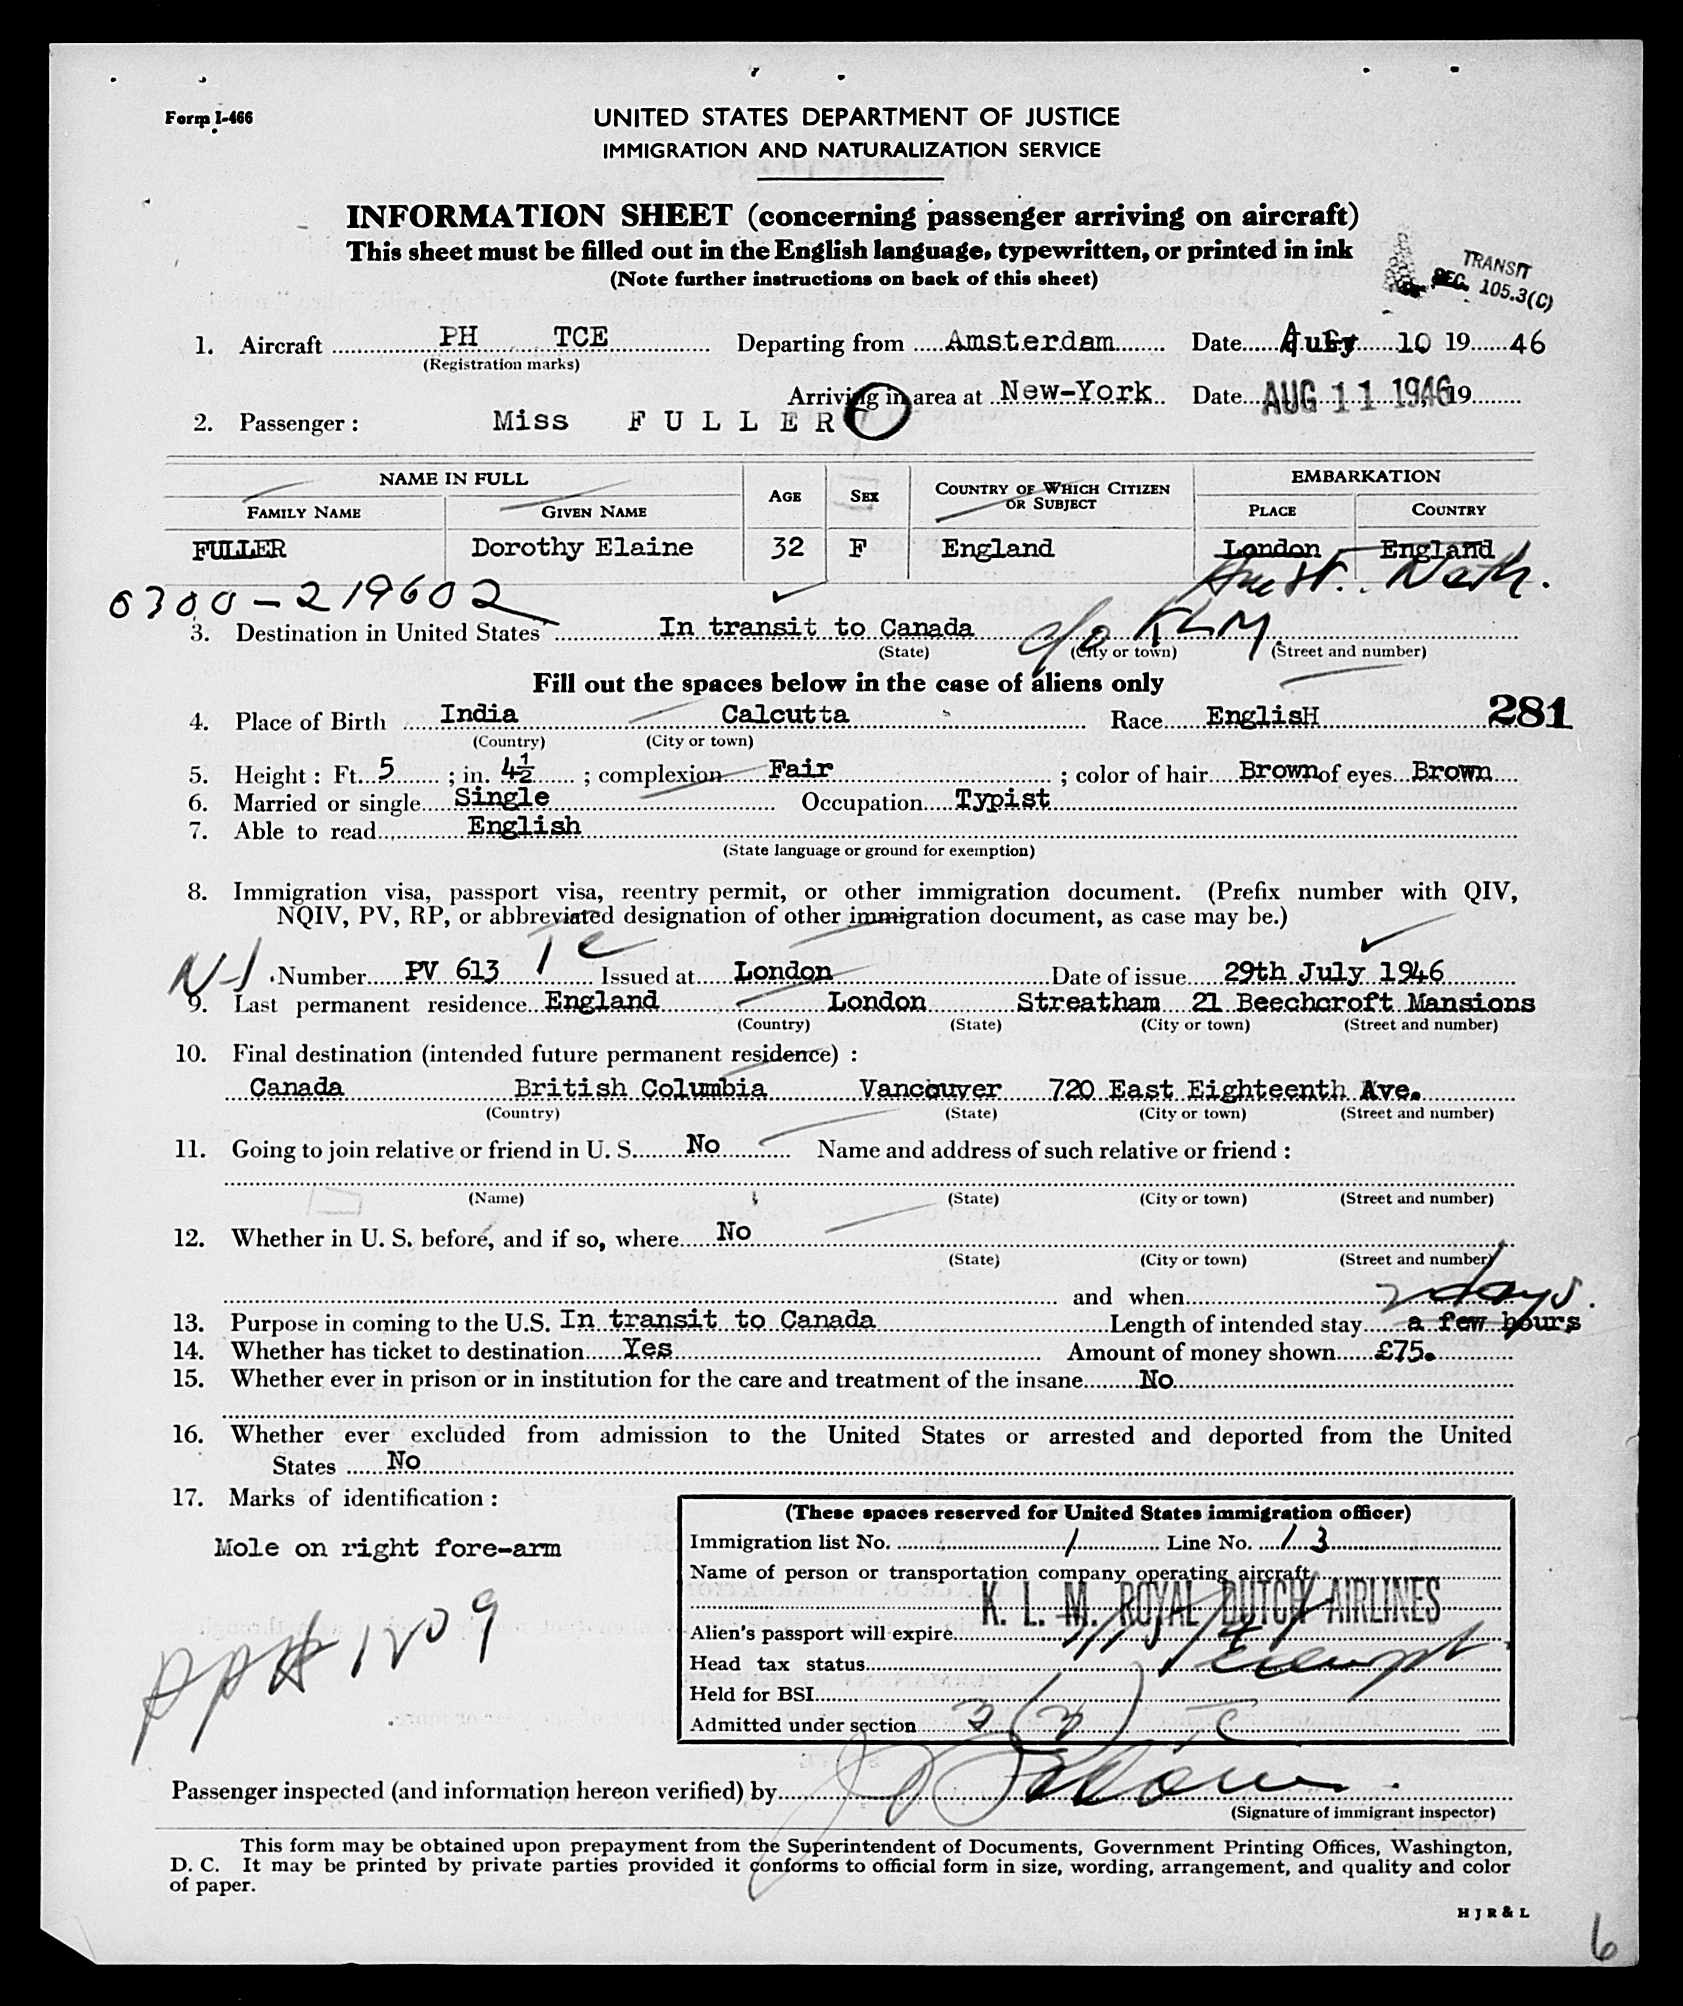 Form I-466
UNITED STATES DEPARTMENT OF JUSTICE
IMMIGRATION AND NATURALIZATION SERVICE
INFORMATION SHEET (concerning passenger arriving on aircraft)
This sheet must be filled out in the English language, typewritten, or printed in ink
(Note further instructions on back of this sheet)
TRANSIT
SEC. 105.3(C)
1. Aircraft PH TCE Departing from Amsterdam Date 10 19 46
(Registration marks)
Arriving in area at New-York Date AUG 11 1946 19
2. Passenger : Miss F U L L E R
NAME IN FULL AGE SEX COUNTRY OF WHICH CITIZEN OR SUBJECT EMBARKATION
FAMILY NAME GIVEN NAME PLACE COUNTRY
FULLER Dorothy Elaine 32 F England London England
0300-219602 Amst. Neth.
3. Destination in United States In transit to Canada c/o KLM.
(State) (City or town) (Street and number)
Fill out the spaces below in the case of aliens only
4. Place of Birth India Calcutta Race EnglisH 281
(Country) (City or town)
5. Height : Ft. 5 ; in. 4½ ; complexion Fair ; color of hair Brown of eyes Brown
6. Married or single Single Occupation Typist
7. Able to read English
(State language or ground for exemption)
8. Immigration visa, passport visa, reentry permit, or other immigration document. (Prefix number with QIV,
NQIV, PV, RP, or abbreviated designation of other immigration document, as case may be.)
Number PV 613 Issued at London Date of issue 29th July 1946
9. Last permanent residence England London Streatham 21 Beechcroft Mansions
(Country) (State) (City or town) (Street and number)
10. Final destination (intended future permanent residence) :
Canada British Columbia Vancouver 720 East Eighteenth Ave.
(Country) (State) (City or town) (Street and number)
11. Going to join relative or friend in U. S. No Name and address of such relative or friend :
(Name) (State) (City or town) (Street and number)
12. Whether in U. S. before, and if so, where No
(State) (City or town) (Street and number)
and when
2 days.
13. Purpose in coming to the U.S. In transit to Canada Length of intended stay a few hours
14. Whether has ticket to destination Yes Amount of money shown £75.
15. Whether ever in prison or in institution for the care and treatment of the insane No
16. Whether ever excluded from admission to the United States or arrested and deported from the United
States No
17. Marks of identification :
Mole on right fore-arm
(These spaces reserved for United States immigration officer)
Immigration list No. 1 Line No. 13
Name of person or transportation company operating aircraft
K. L. M. ROYAL DUTCH AIRLINES
Alien's passport will expire
Head tax status exempt
Held for BSI
Admitted under section 3(2)
Passenger inspected (and information hereon verified) by
(Signature of immigrant inspector)
This form may be obtained upon prepayment from the Superintendent of Documents, Government Printing Offices, Washington,
D. C. It may be printed by private parties provided it conforms to official form in size, wording, arrangement, and quality and color
of paper.
H J R & L
6